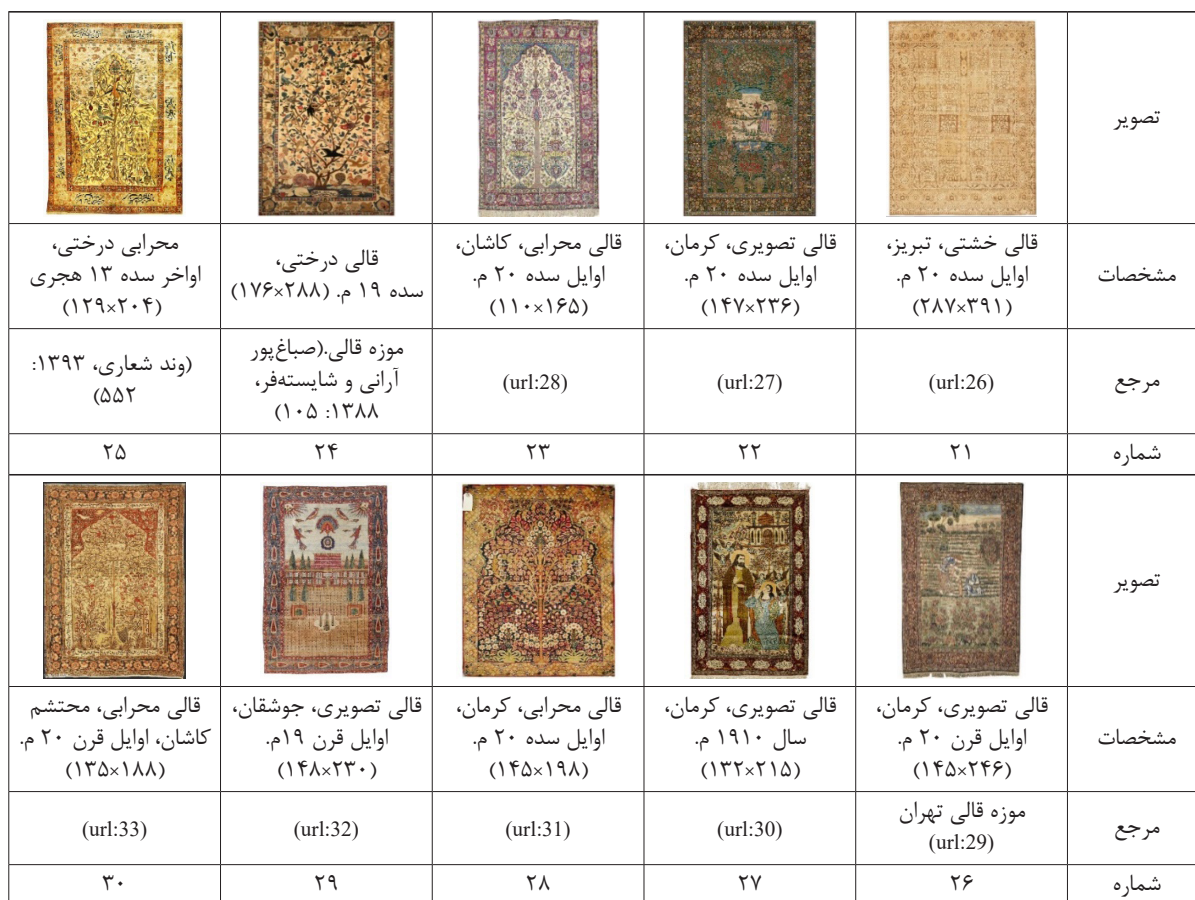 تصویر
مشخصات
قالی خشتی، تبریز،
اوایل سده ۲۰ م.
(۲۸۷×۳۹۱)
قالی تصویری، کرمان،
اوایل سده ۲۰ م.
(۱۴۷×۲۳۶)
قالی محرابی، کاشان،
اوایل سده ۲۰ م.
(۱۱۰×۱۶۵)
قالی درختی،
سده ۱۹ م. (۱۷۶×۲۸۸)
محرابی درختی،
اواخر سده ۱۳ هجری
(۱۲۹×۲۰۴)
مرجع
(url:26)
(url:27)
(url:28)
موزه قالی.(صباغ‌پور
آرانی و شایسته‌فر،
۱۳۸۸: ۱۰۵)
(وند شعاری، ۱۳۹۳:
۵۵۲)
شماره
۲۱
۲۲
۲۳
۲۴
۲۵
تصویر
مشخصات
قالی تصویری، کرمان،
اوایل قرن ۲۰ م.
(۱۴۵×۲۴۶)
قالی تصویری، کرمان،
سال ۱۹۱۰ م.
(۱۳۲×۲۱۵)
قالی محرابی، کرمان،
اوایل سده ۲۰ م.
(۱۴۵×۱۹۸)
قالی تصویری، جوشقان،
اوایل قرن ۱۹م.
(۱۴۸×۲۳۰)
قالی محرابی، محتشم
کاشان، اوایل قرن ۲۰ م.
(۱۳۵×۱۸۸)
مرجع
موزه قالی تهران
(url:29)
(url:30)
(url:31)
(url:32)
(url:33)
شماره
۲۶
۲۷
۲۸
۲۹
۳۰